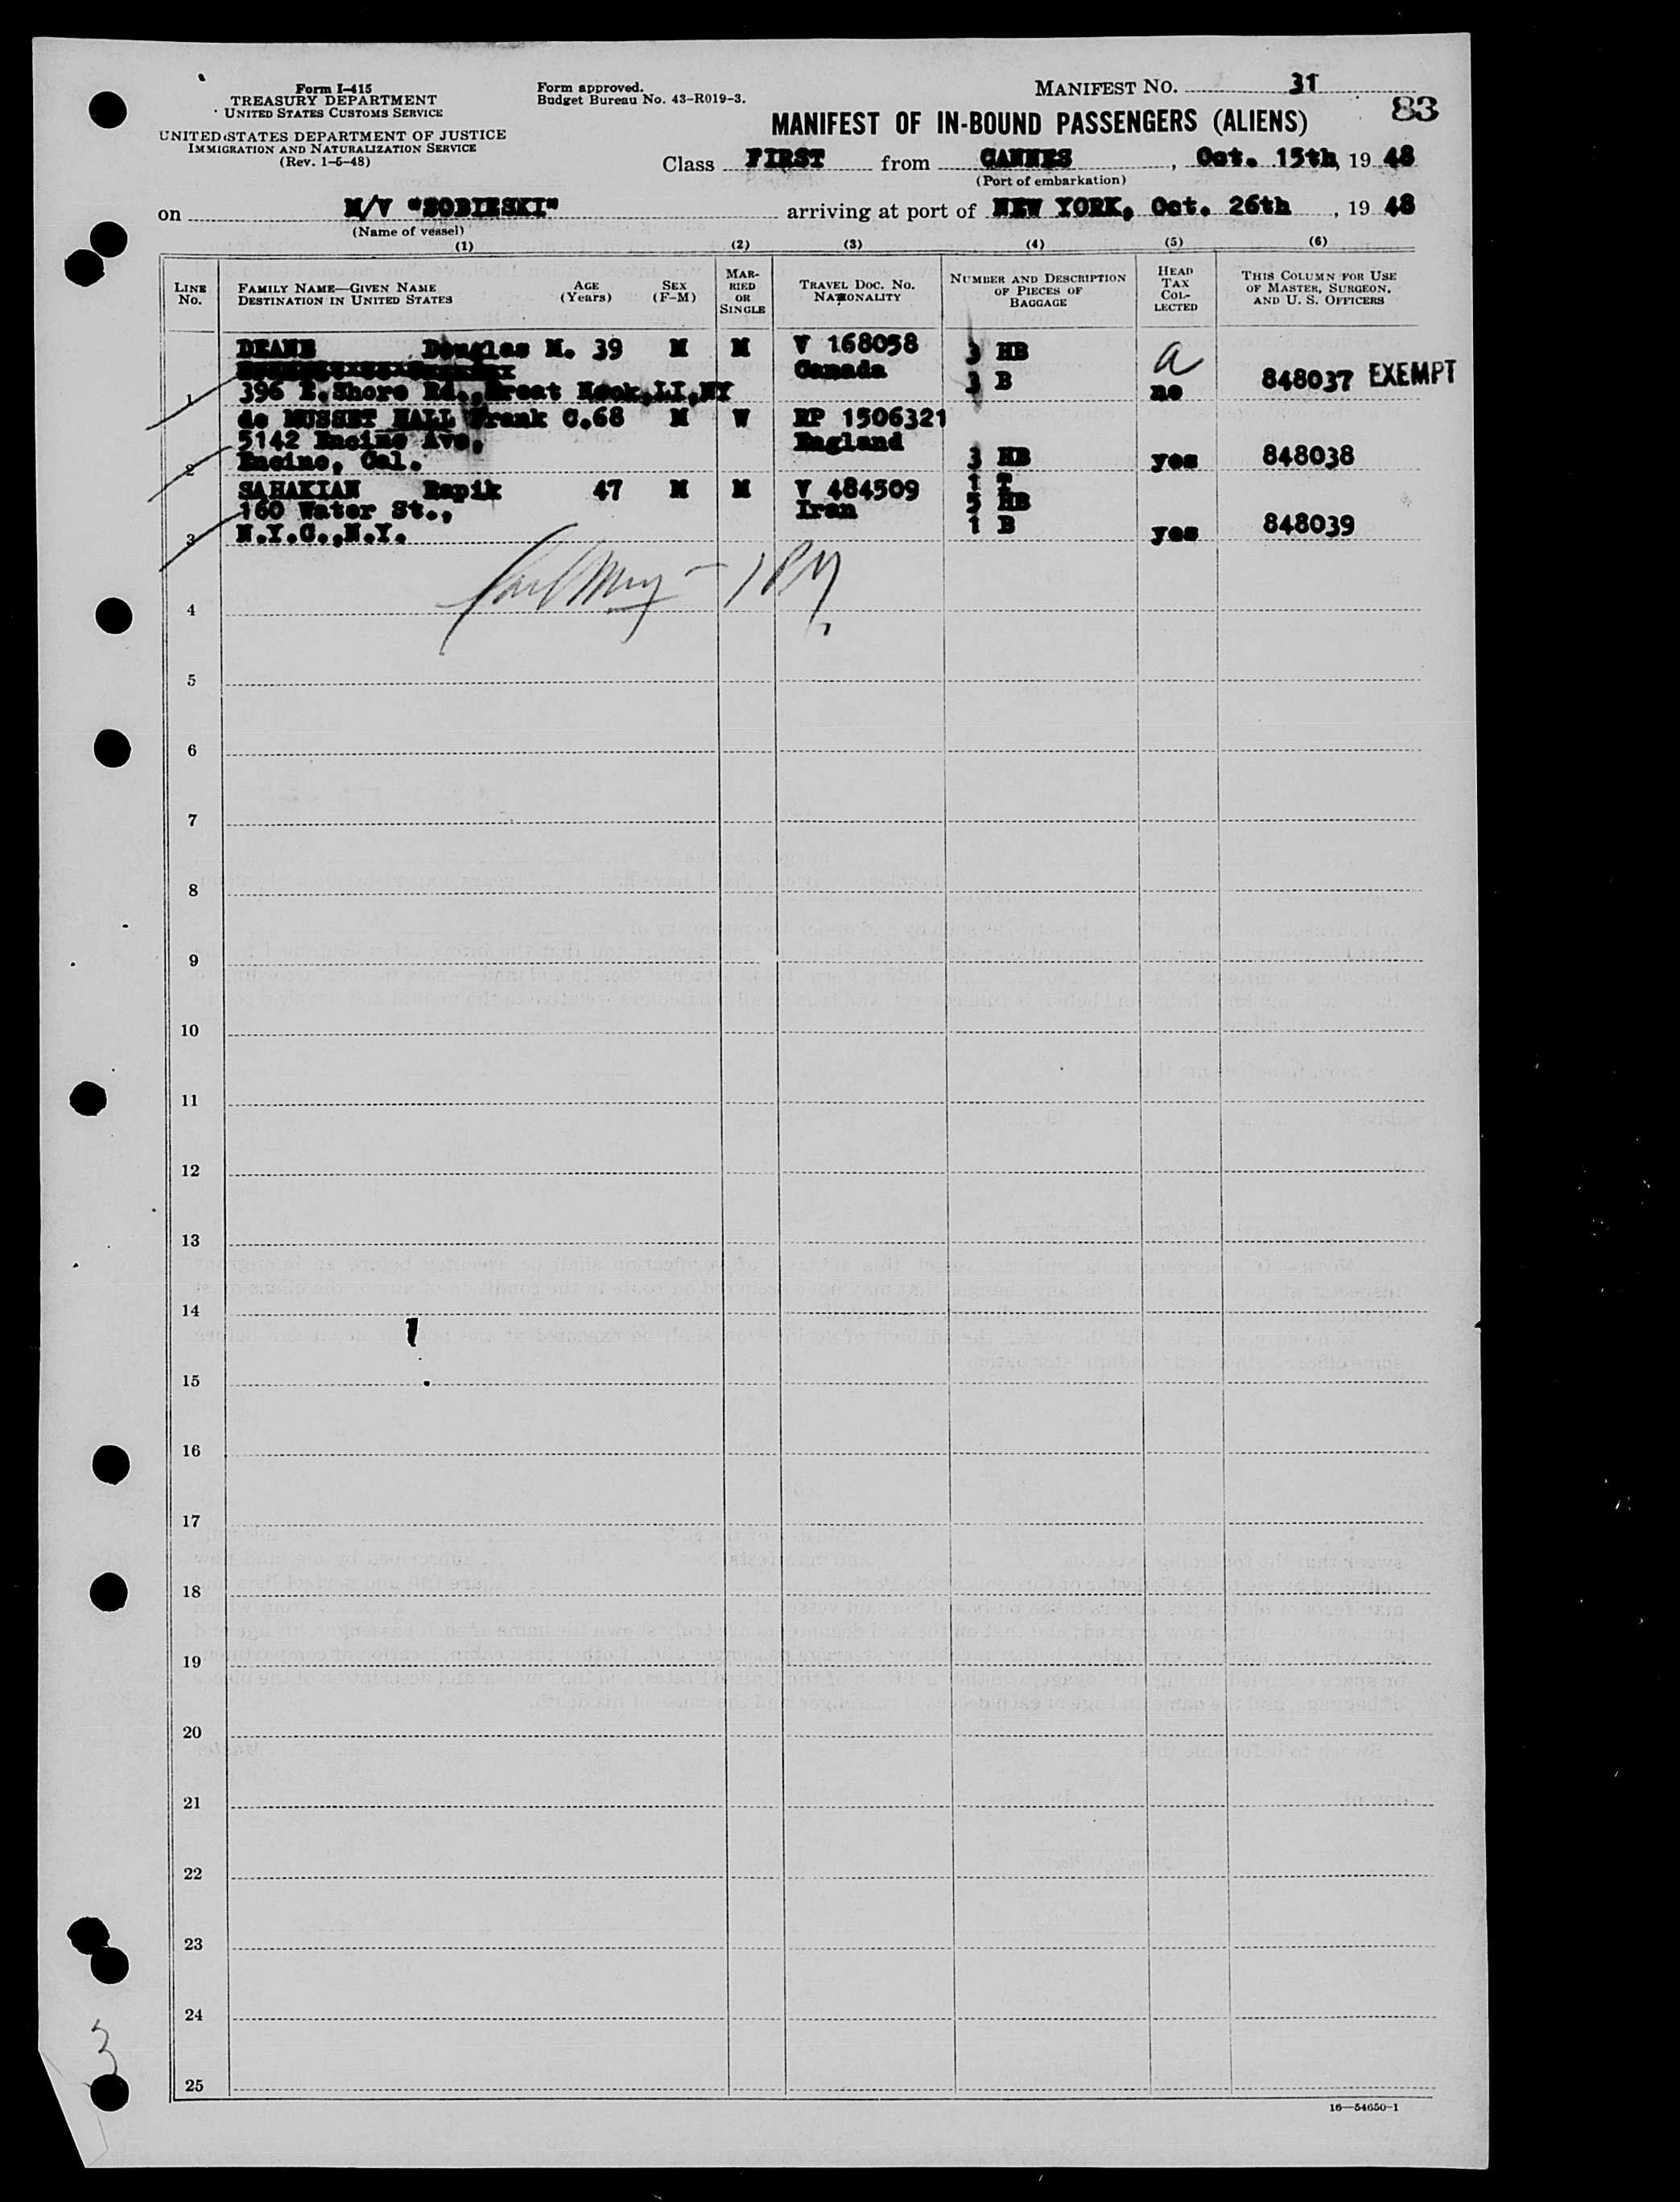 Form I-415
TREASURY DEPARTMENT
UNITED STATES CUSTOMS SERVICE
UNITED STATES DEPARTMENT OF JUSTICE
IMMIGRATION AND NATURALIZATION SERVICE
(Rev. 1-5-48)
Form approved.
Budget Bureau No. 43-R019-3.
MANIFEST NO. 31
83
MANIFEST OF IN-BOUND PASSENGERS (ALIENS)
Class FIRST from CANNES, Oct. 15th, 19 48
(Port of embarkation)
on M/V "SOBIESKI" arriving at port of NEW YORK, Oct. 26th, 19 48
(Name of vessel)
(1) (2) (3) (4) (5) (6)
LINE No. FAMILY NAME—GIVEN NAME DESTINATION IN UNITED STATES AGE (Years) SEX (F-M) MARRIED OR SINGLE TRAVEL DOC. NO. NATIONALITY NUMBER AND DESCRIPTION OF PIECES OF BAGGAGE HEAD TAX COLLECTED THIS COLUMN FOR USE OF MASTER, SURGEON, AND U. S. OFFICERS
DEANE Douglas M. 39 M M V 168058 3 HB a
Canada 3 B 848037 EXEMPT
1 396 E.Shore Rd.,Great Neck,LI,NY no
de MUSSET HALL Frank C.68 M W RP 1506321
5142 Encino Ave, England
2 Encino, Cal. 3 HB yes 848038
1 T
SAHAKIAN Rapik 47 M M V 484509 5 HB
160 Water St., Iran
3 N.Y.C.,N.Y. 1 B yes 848039
4
5
6
7
8
9
10
11
12
13
14
15
16
17
18
19
20
21
22
23
24
25
3
16—54650-1